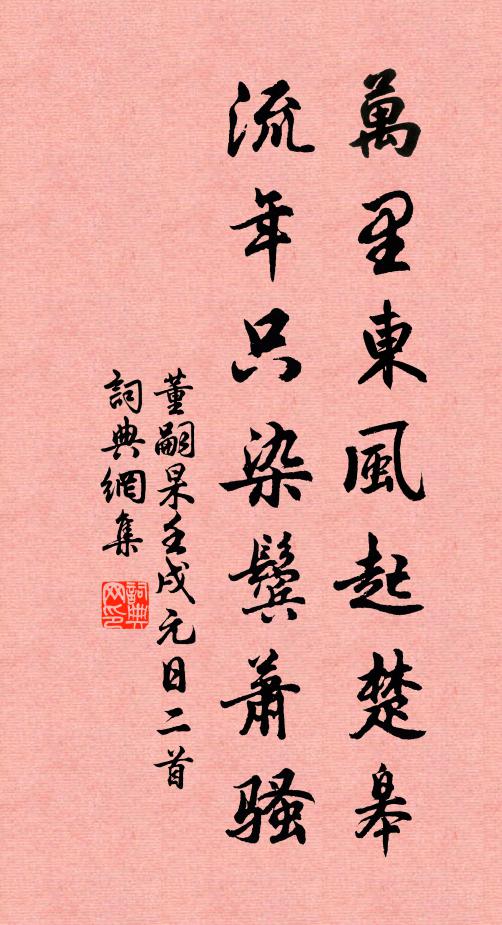 萬里東風起楚皋
流年只染鬢蕭骚
董嗣杲壬戌元日二首
詞典網集
詞典网印